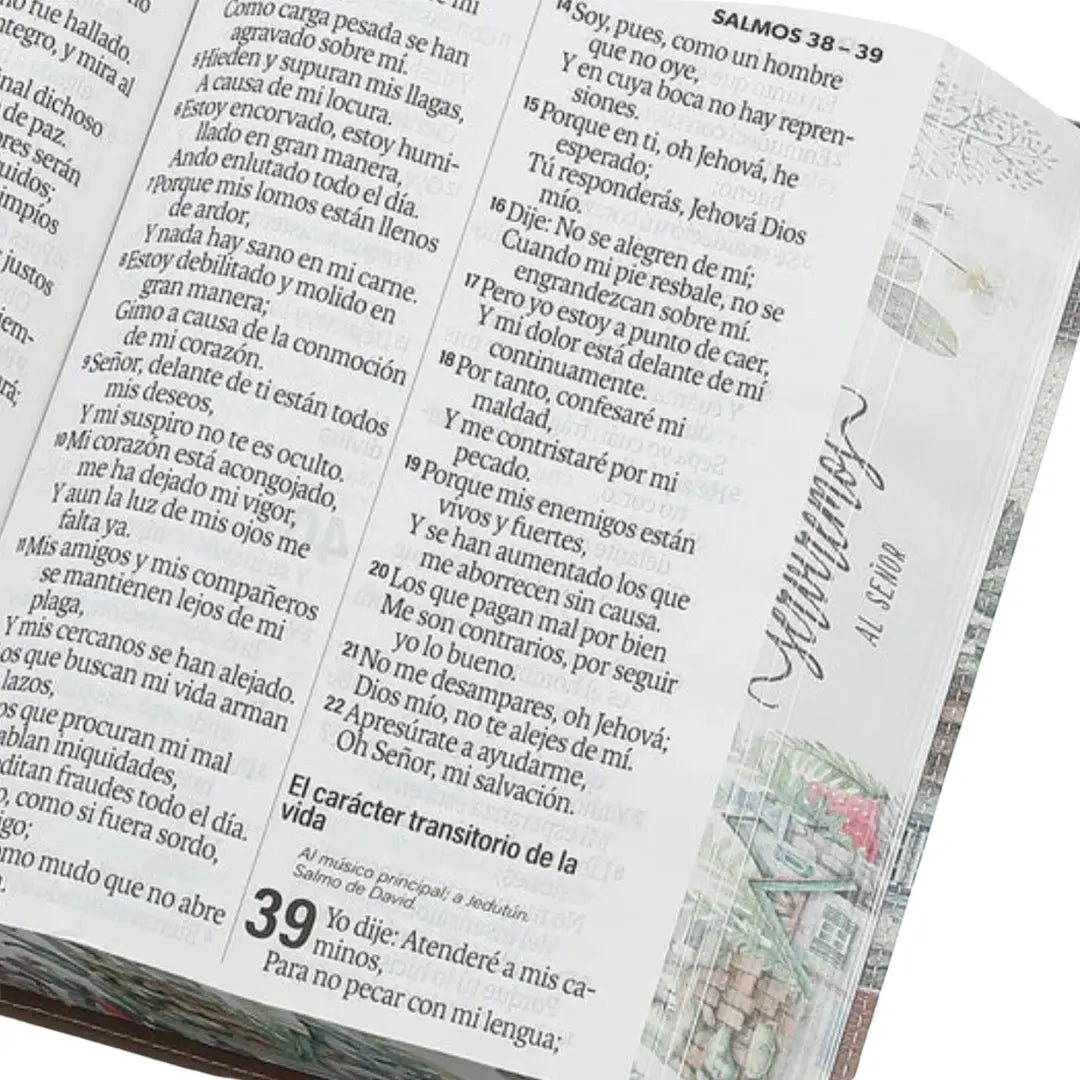 no fue hallado.
ntegro, y mira al
nal dichoso
de paz.
ores serán
uidos;
impíos
justos
Como carga pesada se han
agravado sobre mí.
5 Hieden y supuran mis llagas,
A causa de mi locura.
6 Estoy encorvado, estoy humi-
llado en gran manera,
Ando enlutado todo el día.
7 Porque mis lomos están llenos
de ardor,
Y nada hay sano en mi carne.
8 Estoy debilitado y molido en
gran manera;
Gimo a causa de la conmoción
de mi corazón.
9 Señor, delante de ti están todos
mis deseos,
Y mi suspiro no te es oculto.
10 Mi corazón está acongojado,
me ha dejado mi vigor,
Y aun la luz de mis ojos me
falta ya.
11 Mis amigos y mis compañeros
se mantienen lejos de mi
plaga,
Y mis cercanos se han alejado.
os que buscan mi vida arman
lazos,
os que procuran mi mal
ablan iniquidades,
editan fraudes todo el día.
o, como si fuera sordo,
igo;
omo mudo que no abre
SALMOS 38 – 39
14 Soy, pues, como un hombre
que no oye,
Y en cuya boca no hay repren-
siones.
15 Porque en ti, oh Jehová, he
esperado;
Tú responderás, Jehová Dios
mío.
16 Dije: No se alegren de mí;
Cuando mi pie resbale, no se
engrandezcan sobre mí.
17 Pero yo estoy a punto de caer,
Y mi dolor está delante de mí
continuamente.
18 Por tanto, confesaré mi
maldad,
Y me contristaré por mi
pecado.
19 Porque mis enemigos están
vivos y fuertes,
Y se han aumentado los que
me aborrecen sin causa.
20 Los que pagan mal por bien
Me son contrarios, por seguir
yo lo bueno.
21 No me desampares, oh Jehová;
Dios mío, no te alejes de mí.
22 Apresúrate a ayudarme,
Oh Señor, mi salvación.
El carácter transitorio de la
vida
Al músico principal; a Jedutún.
Salmo de David.
39 Yo dije: Atenderé a mis ca-
minos,
Para no pecar con mi lengua;
serviremos
AL SEÑOR